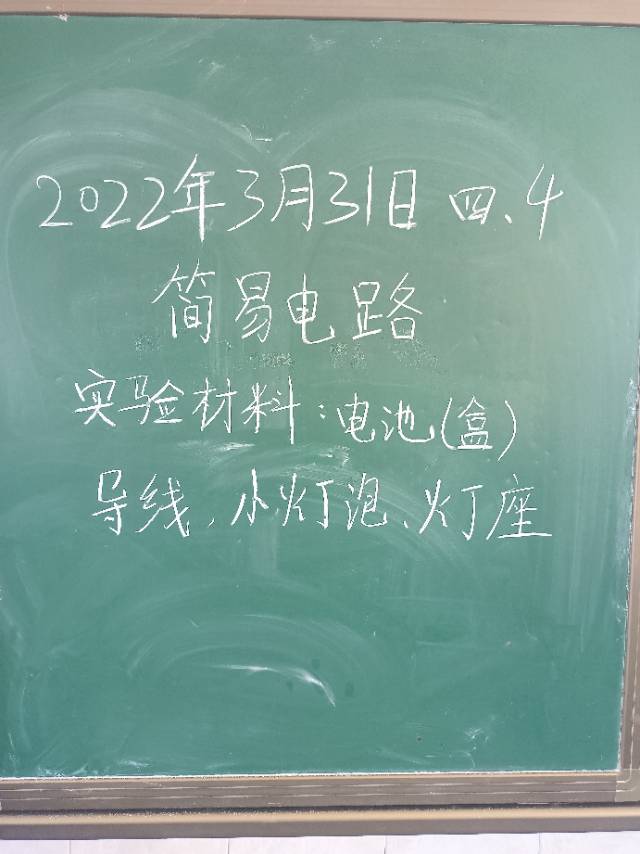 2022年3月31日 四、4
简易电路
实验材料:电池(盒)
导线、小灯泡、灯座